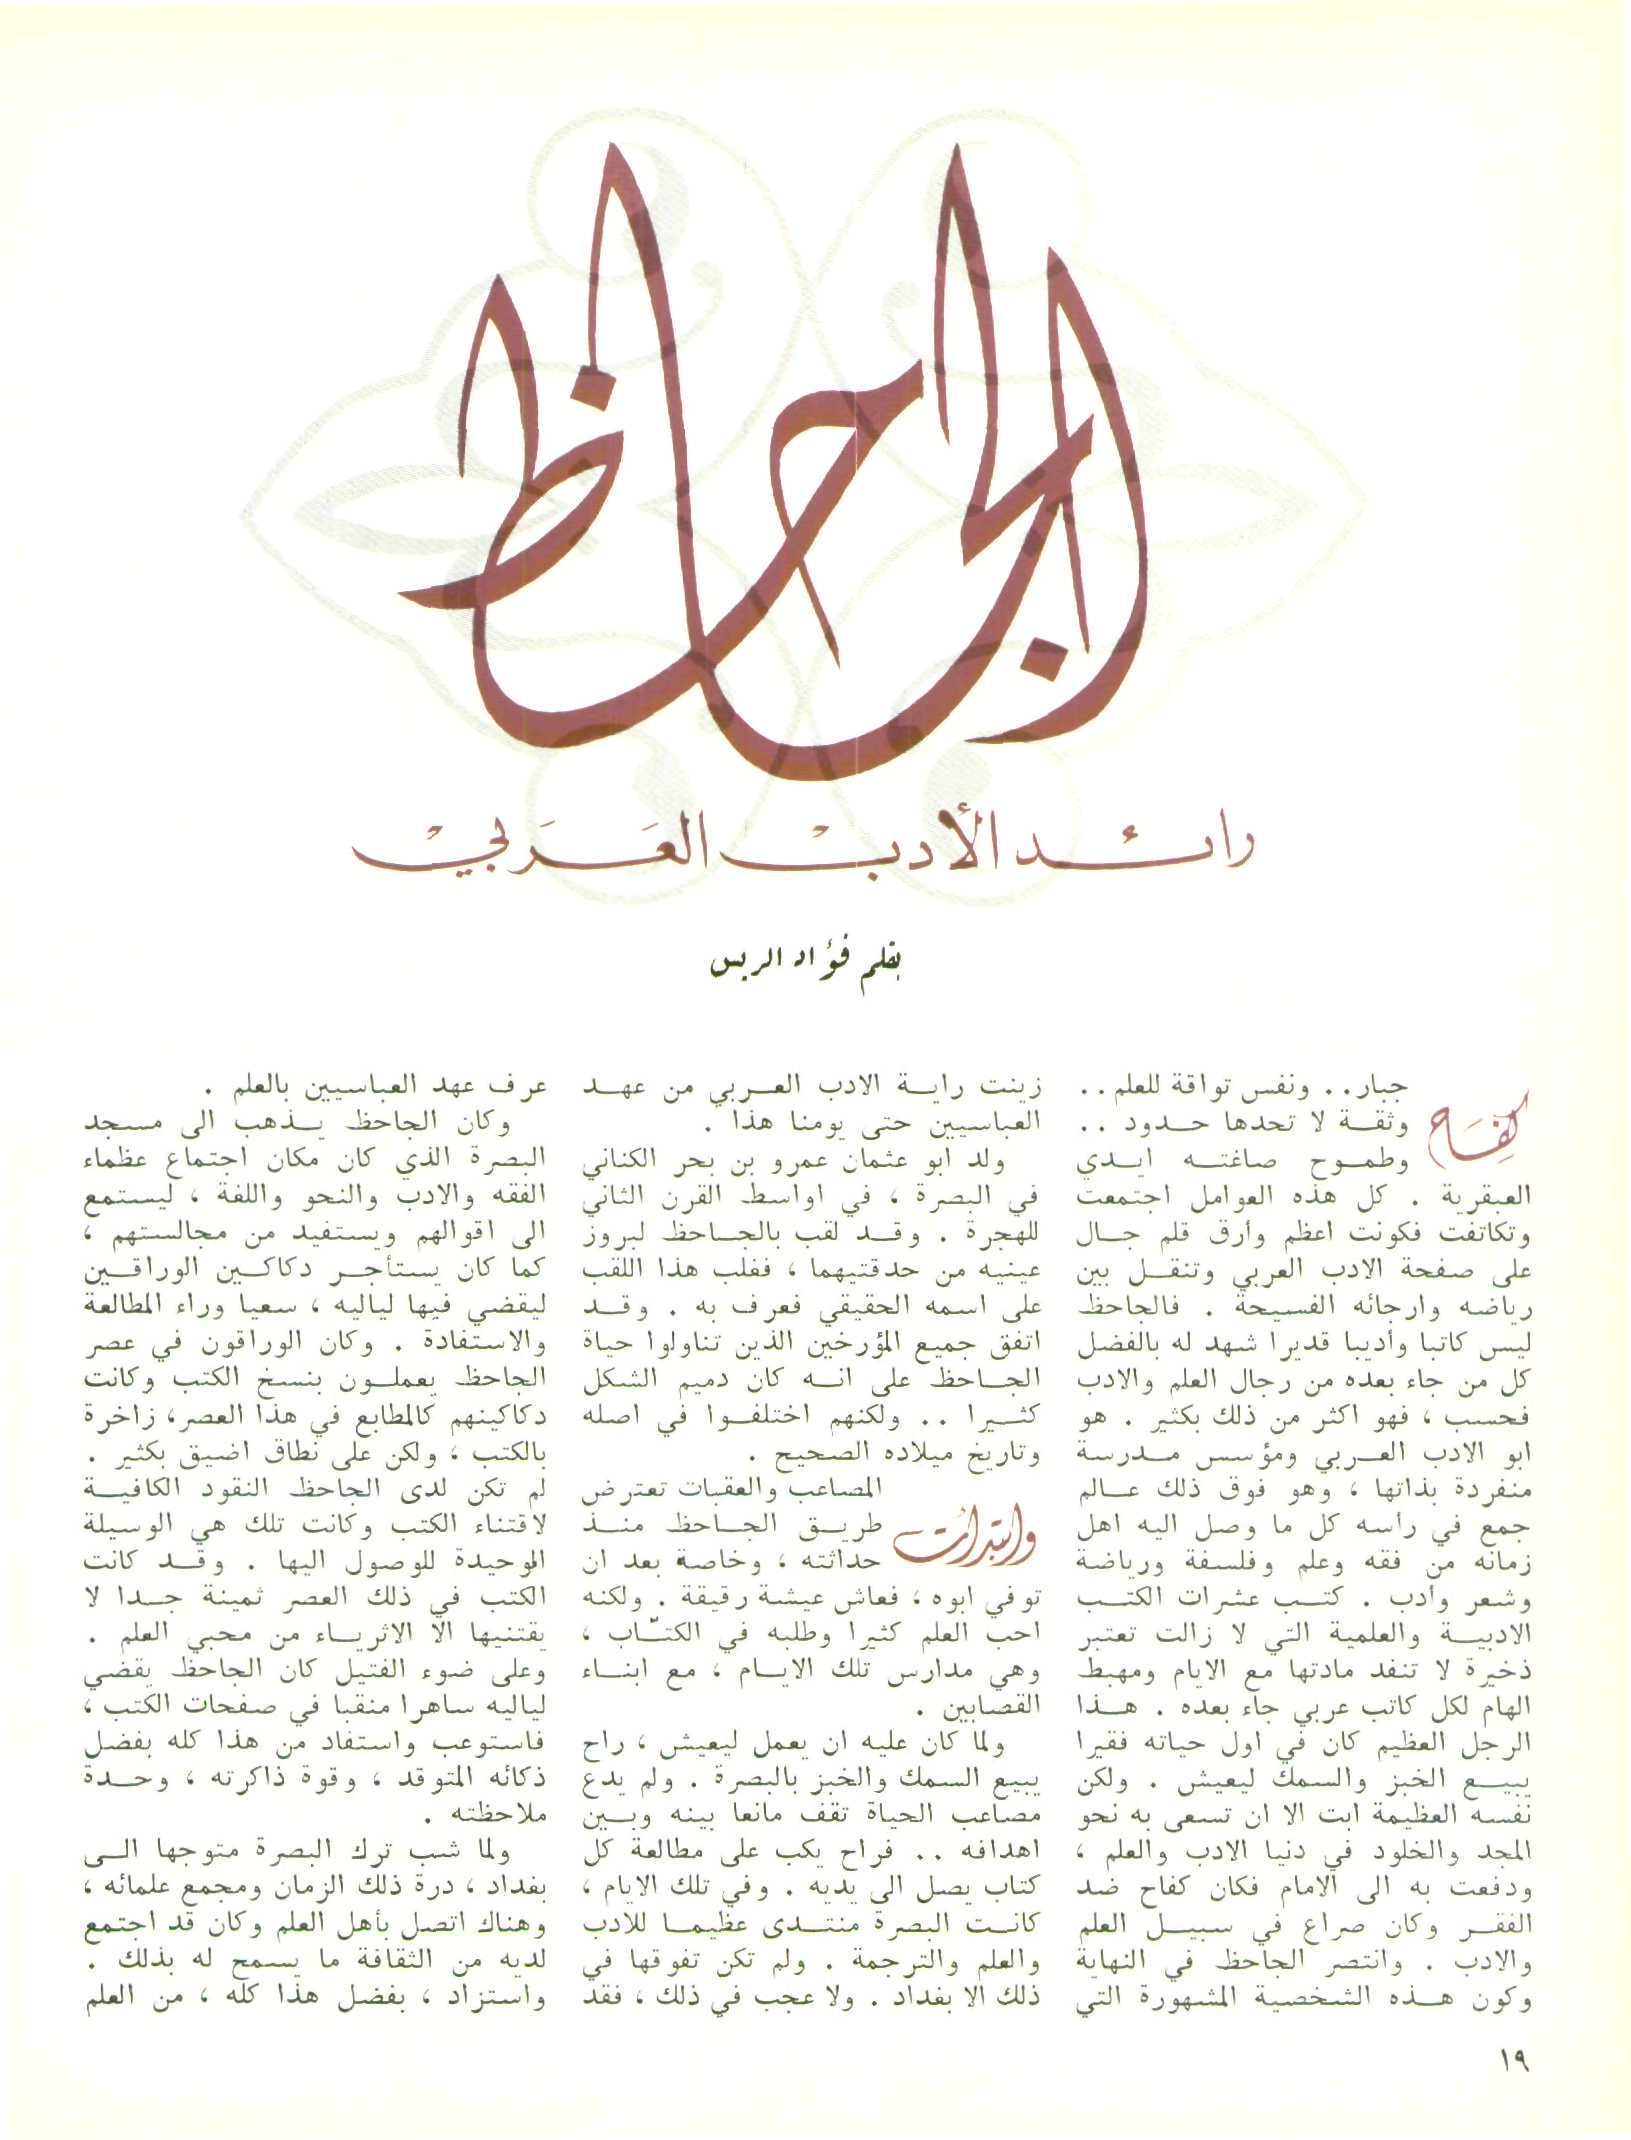 الجاحظ
رائد الأدب العَرَبي
بقلم فؤاد الريس
كفاح جبار.. ونفس تواقة للعلم ..
وثقة لا تحدها حدود ..
وطموح صاغته ايدي
العبقرية . كل هذه العوامل اجتمعت
وتكاتفت فكونت اعظم وأرق قلم جال
على صفحة الادب العربي وتنقل بين
رياضه وارجائه الفسيحة . فالجاحظ
ليس كاتبا وأديبا قديرا شهد له بالفضل
كل من جاء بعده من رجال العلم والادب
فحسب ، فهو اكثر من ذلك بكثير . هو
ابو الادب العربي ومؤسس مدرسة
منفردة بذاتها ، وهو فوق ذلك عالم
جمع في رأسه كل ما وصل اليه اهل
زمانه من فقه وعلم وفلسفة ورياضة
وشعر وأدب . كتب عشرات الكتب
الادبية والعلمية التي لا زالت تعتبر
ذخيرة لا تنفد مادتها مع الايام ومهبط
الهام لكل كاتب عربي جاء بعده . هذا
الرجل العظيم كان في اول حياته فقيرا
يبيع الخبز والسمك ليعيش . ولكن
نفسه العظيمة ابت الا ان تسعى به نحو
المجد والخلود في دنيا الادب والعلم ،
ودفعت به الى الامام فكان كفاح ضد
الفقر وكان صراع في سبيل العلم
والادب . وانتصر الجاحظ في النهاية
وكون هذه الشخصية المشهورة التي
زينت راية الادب العربي من عهد
العباسيين حتى يومنا هذا .
ولد ابو عثمان عمرو بن بحر الكناني
في البصرة ، في اواسط القرن الثاني
للهجرة . وقد لقب بالجاحظ لبروز
عينيه من حدقتيهما ، فغلب هذا اللقب
على اسمه الحقيقي فعرف به . وقد
اتفق جميع المؤرخين الذين تناولوا حياة
الجاحظ على انه كان دميم الشكل
كثيرا .. ولكنهم اختلفوا في اصله
وتاريخ ميلاده الصحيح .
وابتدأت المصاعب والعقبات تعترض
طريق الجاحظ منذ
حداثته ، وخاصة بعد ان
توفي ابوه ، فعاش عيشة رقيقة . ولكنه
احب العلم كثيرا وطلبه في الكتّاب ،
وهي مدارس تلك الايام ، مع ابناء
القصابين .
ولما كان عليه ان يعمل ليعيش ، راح
يبيع السمك والخبز بالبصرة . ولم يدع
مصاعب الحياة تقف مانعا بينه وبين
اهدافه .. فراح يكب على مطالعة كل
كتاب يصل الى يديه . وفي تلك الايام ،
كانت البصرة منتدى عظيما للادب
والعلم والترجمة . ولم تكن تفوقها في
ذلك الا بغداد . ولا عجب في ذلك ، فقد
عرف عهد العباسيين بالعلم .
وكان الجاحظ يذهب الى مسجد
البصرة الذي كان مكان اجتماع عظماء
الفقه والادب والنحو واللغة ، ليستمع
الى اقوالهم ويستفيد من مجالستهم ،
كما كان يستأجر دكاكين الوراقين
ليقضي فيها لياليه ، سعيا وراء المطالعة
والاستفادة . وكان الوراقون في عصر
الجاحظ يعملون بنسخ الكتب وكانت
دكاكينهم كالمطابع في هذا العصر، زاخرة
بالكتب ، ولكن على نطاق اضيق بكثير .
لم تكن لدى الجاحظ النقود الكافية
لاقتناء الكتب وكانت تلك هي الوسيلة
الوحيدة للوصول اليها . وقد كانت
الكتب في ذلك العصر ثمينة جدا لا
يقتنيها الا الاثرياء من محبي العلم .
وعلى ضوء الفتيل كان الجاحظ يقضي
لياليه ساهرا منقبا في صفحات الكتب ،
فاستوعب واستفاد من هذا كله بفضل
ذكائه المتوقد ، وقوة ذاكرته ، وحدة
ملاحظته .
ولما شب ترك البصرة متوجها الى
بغداد ، درة ذلك الزمان ومجمع علمائه ،
وهناك اتصل بأهل العلم وكان قد اجتمع
لديه من الثقافة ما يسمح له بذلك .
واستزاد ، بفضل هذا كله ، من العلم
١٩